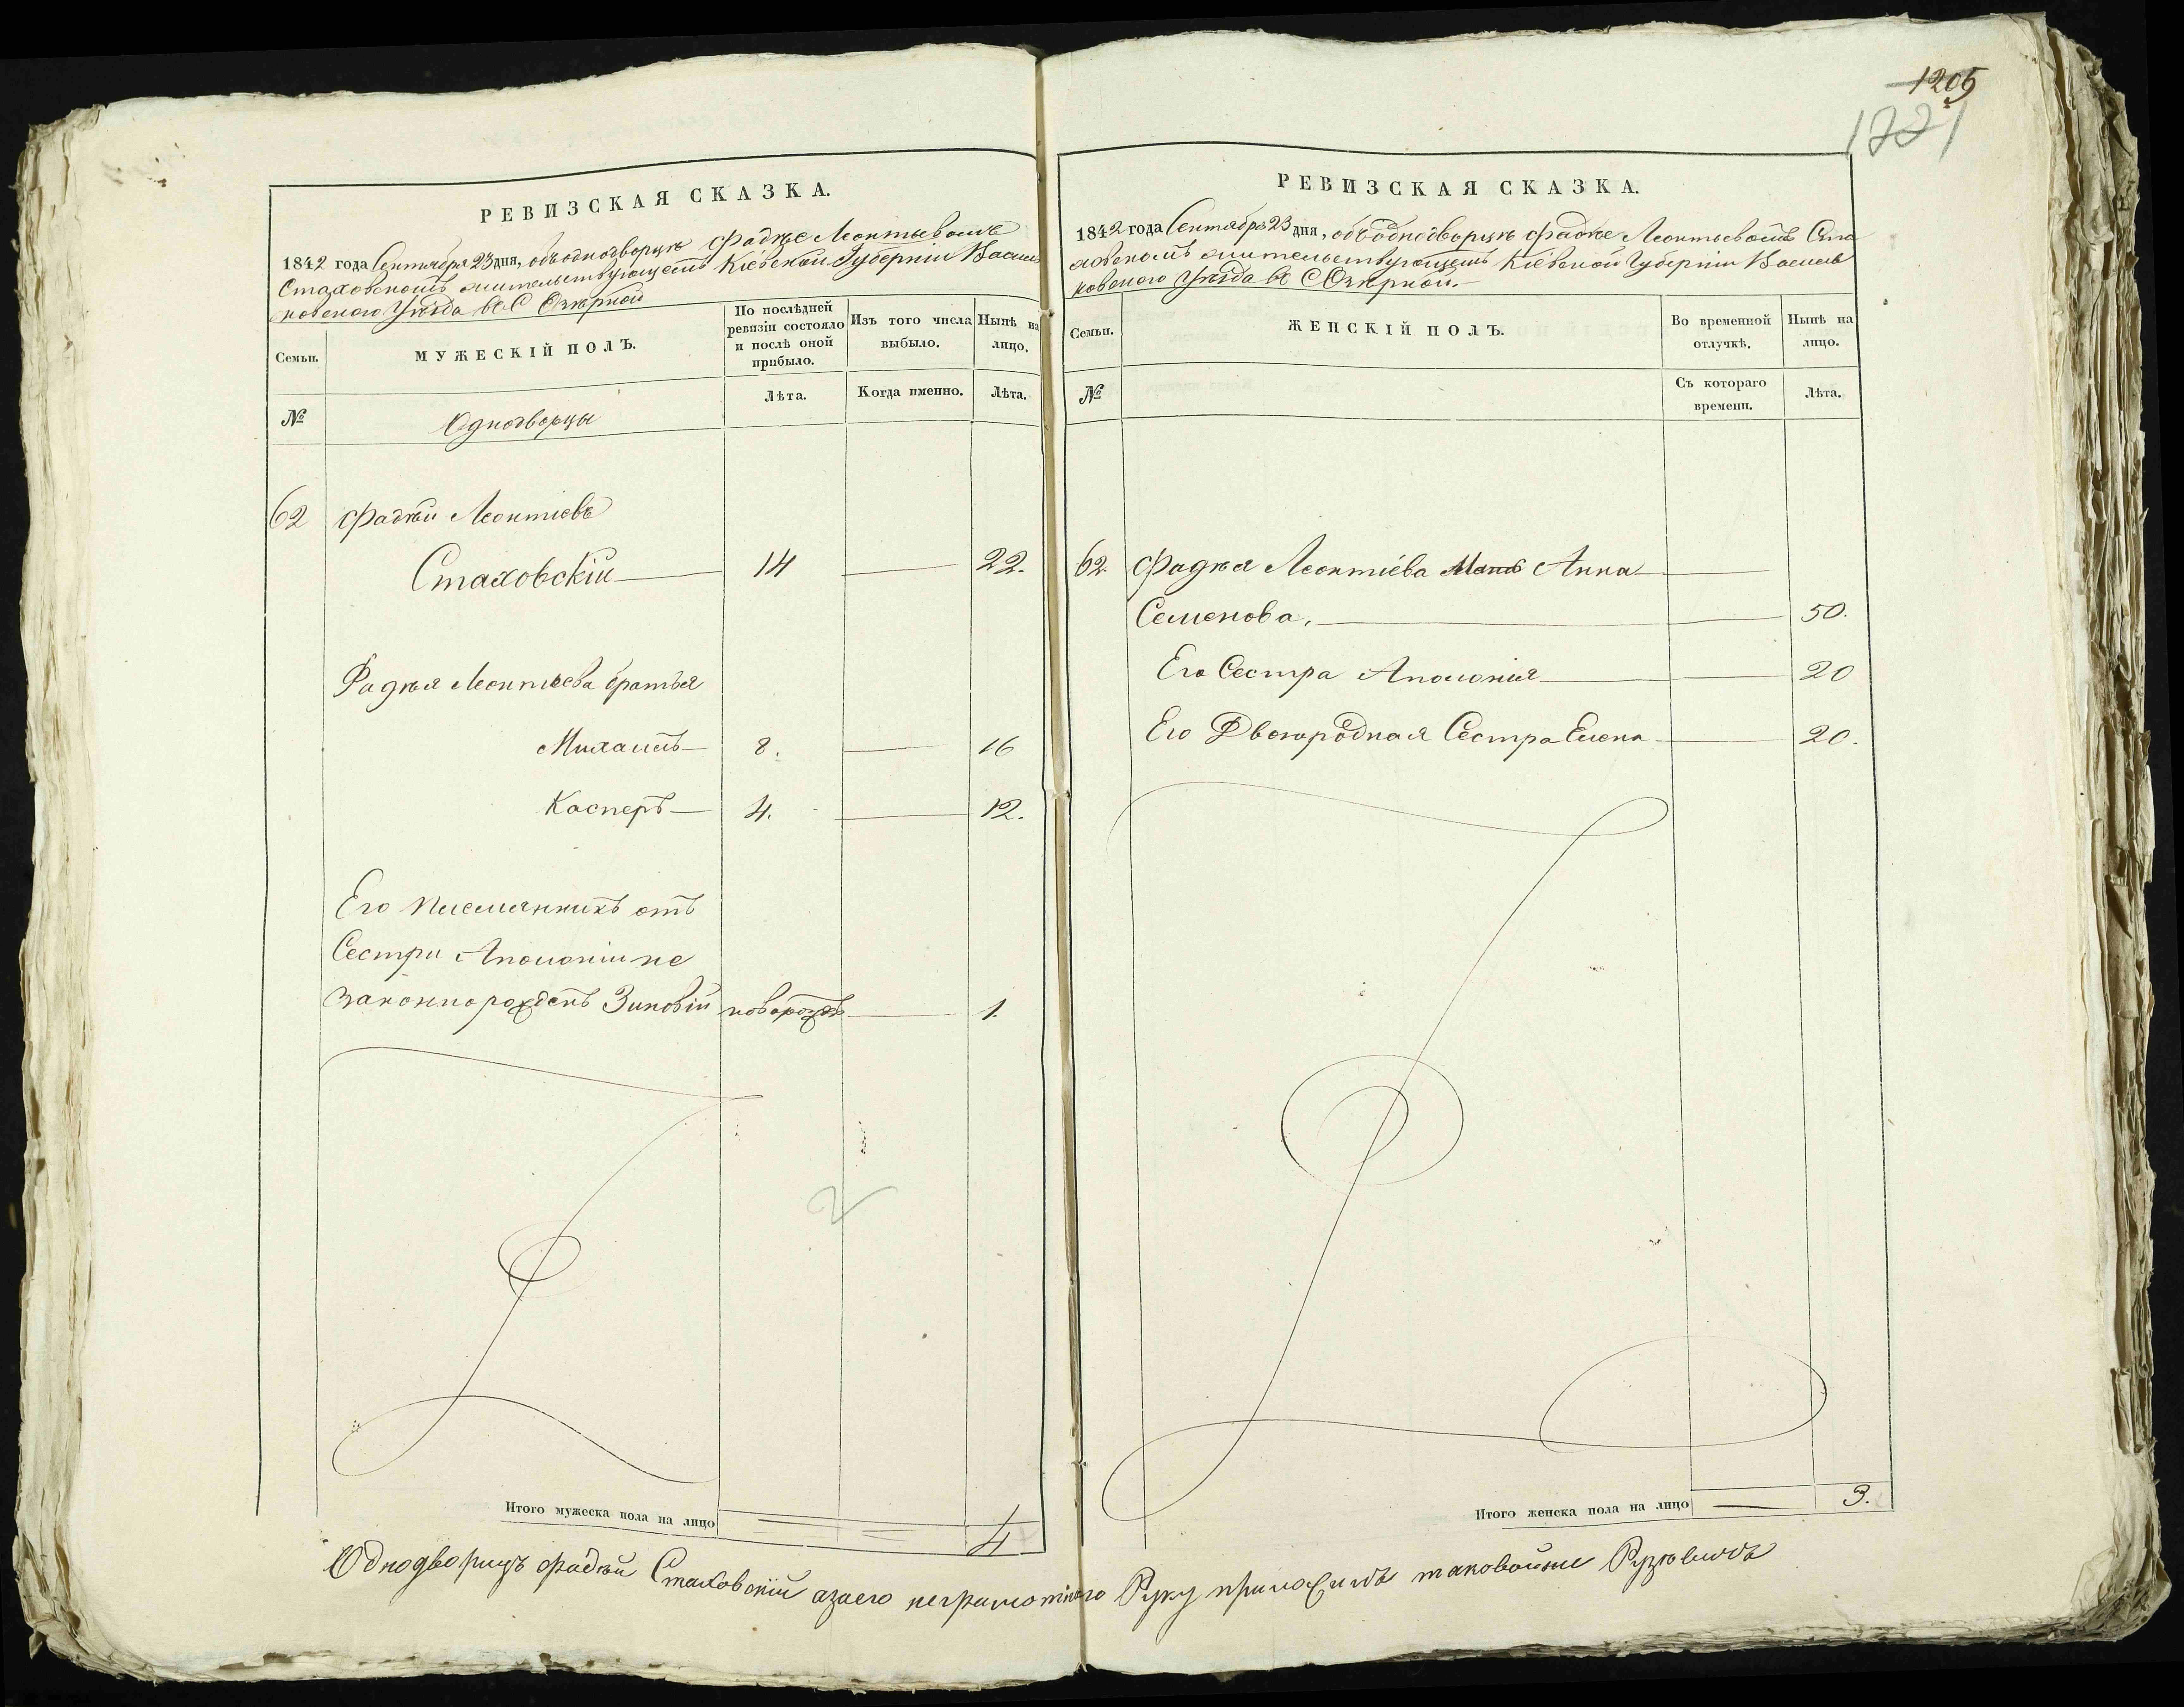 РЕВИЗСКАЯ СКАЗКА.
1842 года Сентября 23 дня, объ однодворцѣ Фадѣе Леонтьевомъ
Стаховскомъ жительствующемъ Кіевской Губерніи Васил
ковского Уѣзда въ С Озѣрной
Семьи.
МУЖЕСКІЙ ПОЛЪ.
По послѣдней ревизіи состояло и послѣ оной прибыло.
Изъ того числа выбыло.
Нынѣ на лицо.
№
Однодворцы
Лѣта.
Когда именно.
Лѣта.
62 Фадѣй Леонтіевъ
Стаховскій — 14 — 22.
Фадѣя Леонтіева братья
Михаилъ — 8. — 16
Касперъ — 4. — 12.
Его племянникъ отъ
Сестри Аполоніи не
законнорожденъ Зиновій новорожд — 1.
2
Итого мужеска пола на лицо
4
1205
1221
РЕВИЗСКАЯ СКАЗКА.
1842 года Сентября 23 дня, объ однодворцѣ Фадѣе Леонтьевомъ Ста
ховскомъ жительствующемъ Кіевской Губерніи Василь
ковского Уѣзда въ С Озѣрной.
Семьи.
ЖЕНСКІЙ ПОЛЪ.
Во временной отлучкѣ.
Нынѣ на лицо.
№
Съ котораго времени.
Лѣта.
62. Фадѣя Леонтіева Мать Анна
Семенова, — 50.
Его Сестра Аполонія — 20
Его Двоюродная Сестра Елена — 20.
Итого женска пола на лицо — 3.
Однодворецъ Фадѣй Стаховскій азаего неграмотнаго Руку приложилъ таковойже